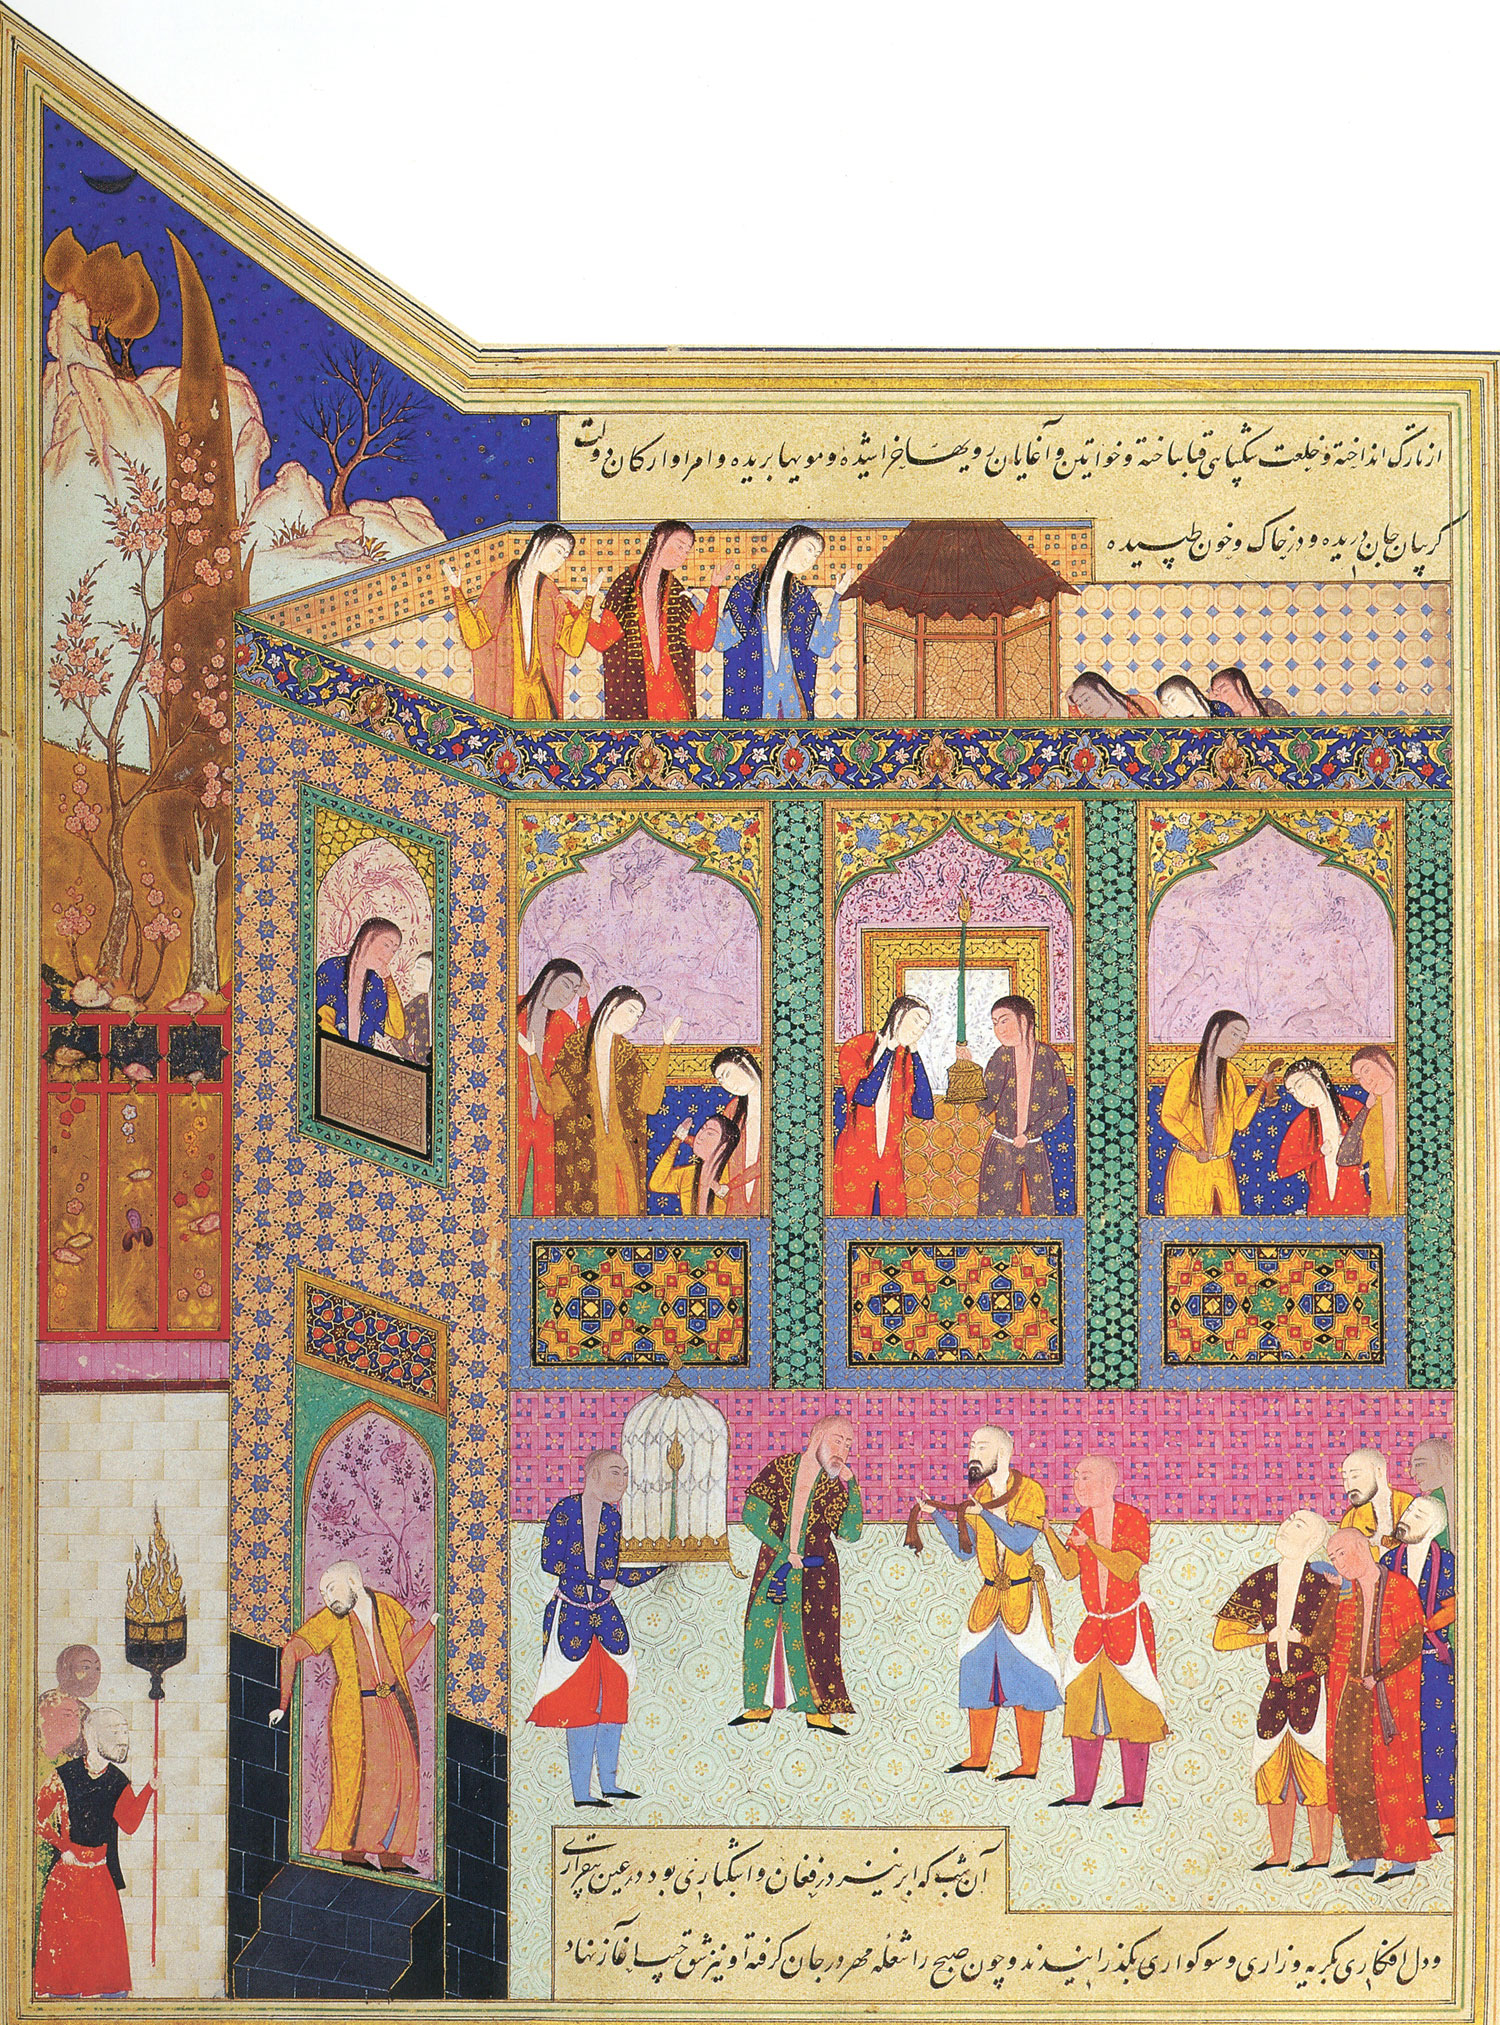 از تارک انداخته و خلعت شکیبایی قبا ساخته و خواتین و آغایان رویها خراشیده و مویها بریده و امرا و ارکان دولت
گریبان جان دریده و در خاک و خون طپیده
آن شب که ابر نیز در فغان و اشکباری بود در عین بیقراری
و دل افکاری بگریه و زاری و سوکواری بگذرانیدند و چون صبح را شعله مهر در جان گرفته او نیز شق جیب آغاز نهاد